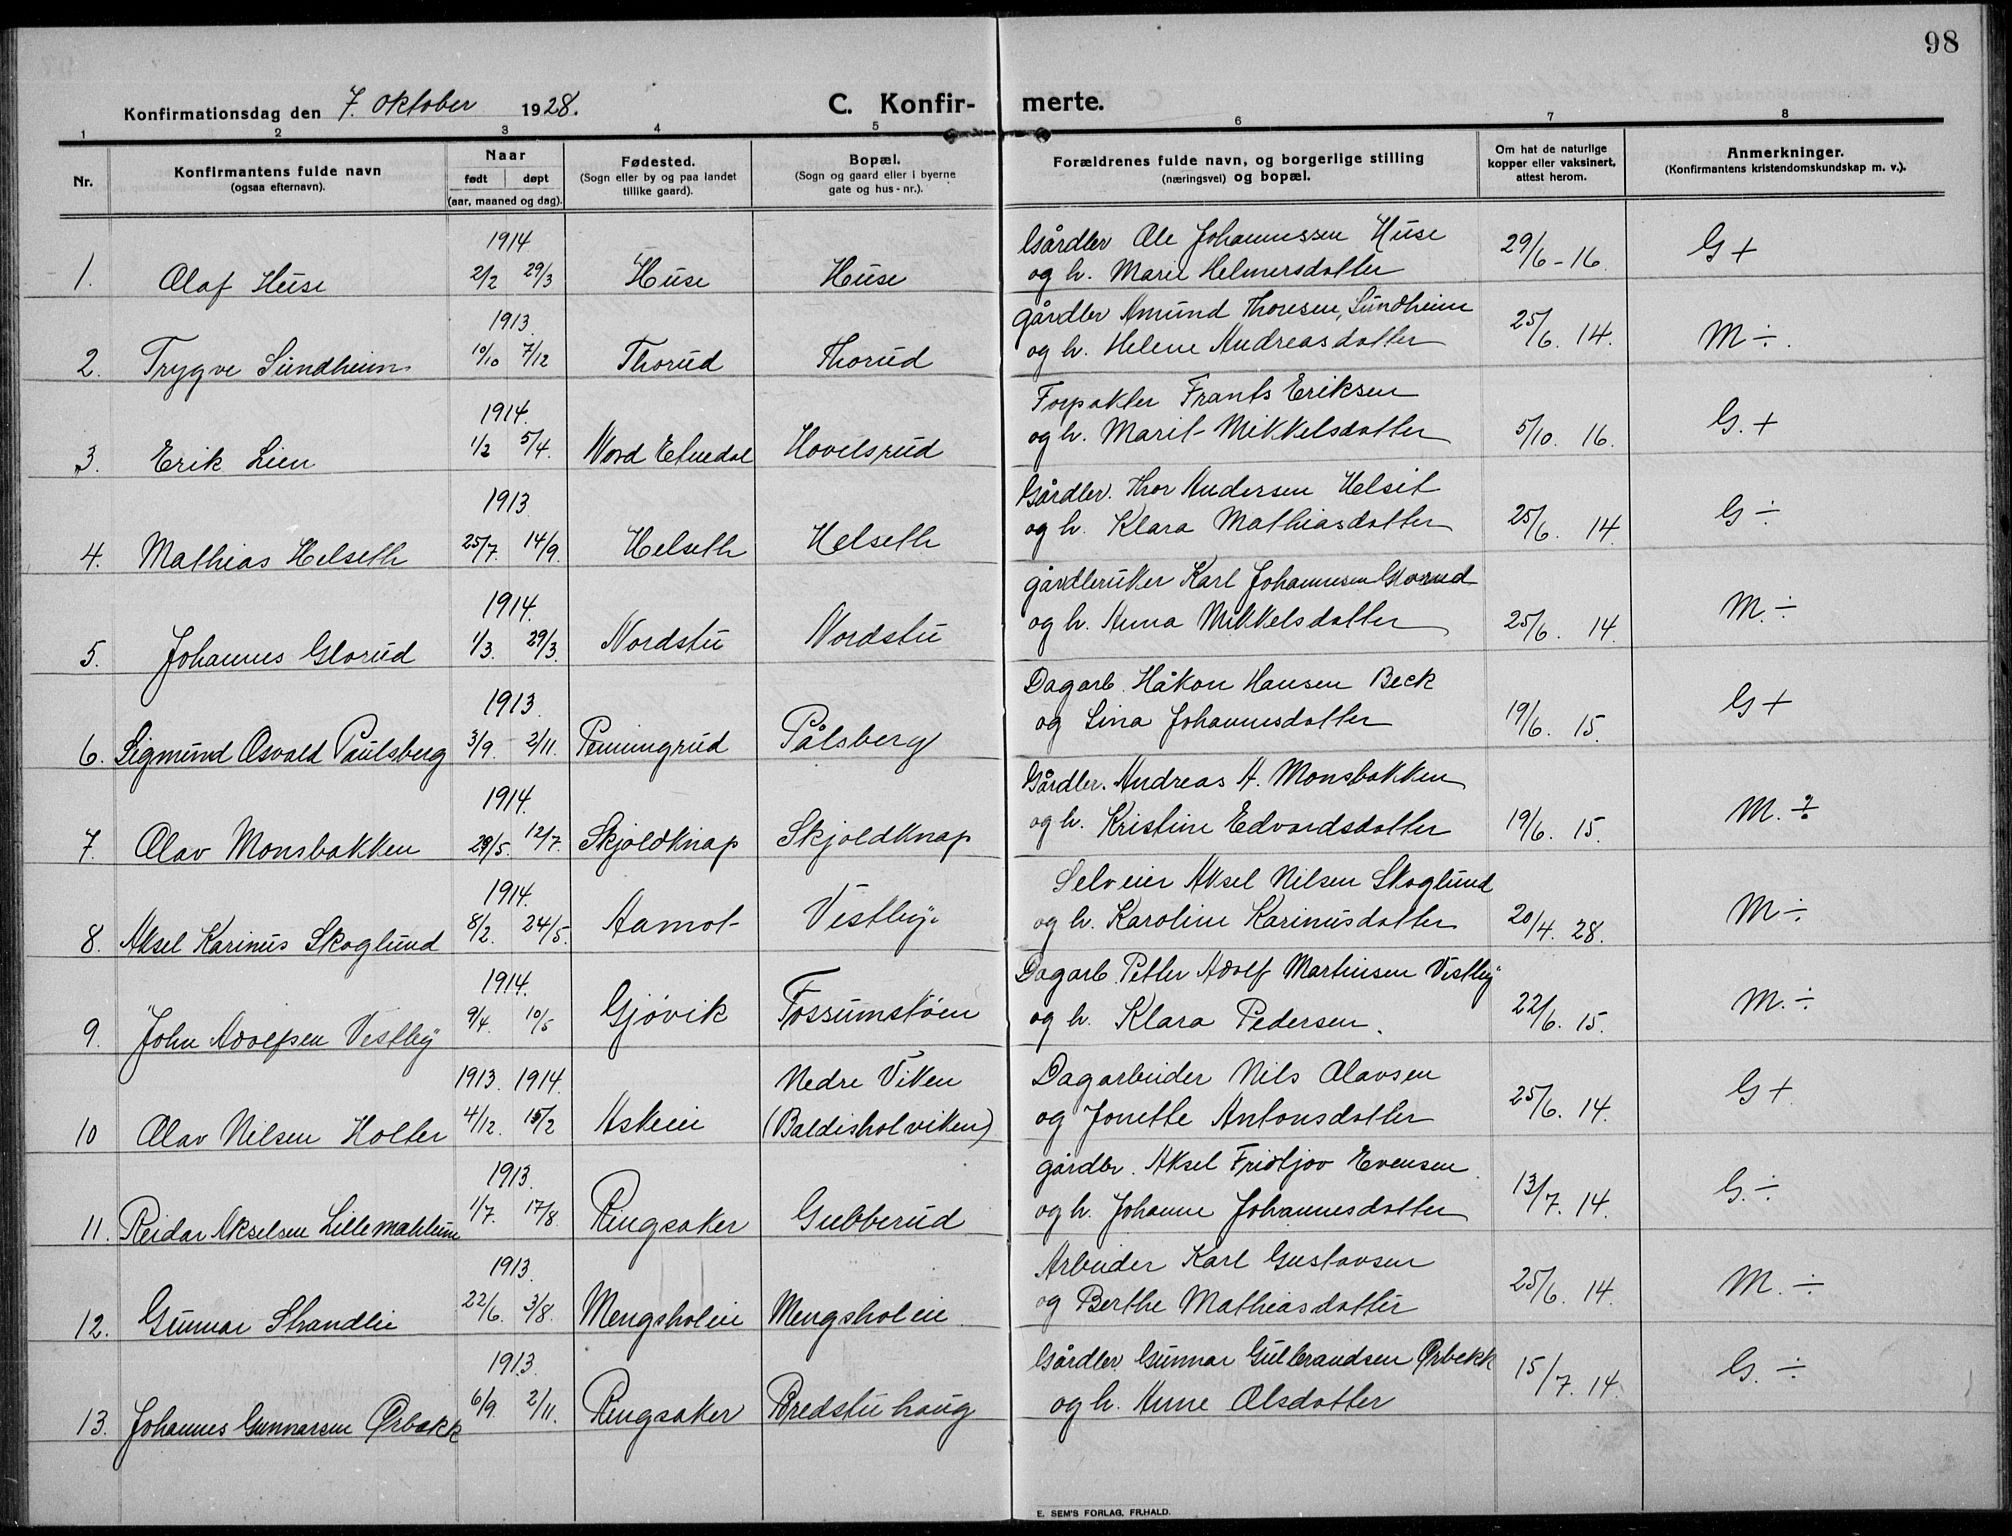 98
Konfirmationsdag den 7. oktober 1928.
C. Konfir- merte.
1 2 3 4 5 6 7 8
Nr.
Konfirmantens fulde navn
(ogsaa efternavn).
Naar
født døpt
(aar, maaned og dag).
Fødested.
(Sogn eller by og paa landet
tillike gaard).
Bopæl.
(Sogn og gaard eller i byerne
gate og hus-nr.).
Forældrenes fulde navn, og borgerlige stilling
(næringsvei) og bopæl.
Om hat de naturlige
kopper eller vaksinert,
attest herom.
Anmerkninger.
(Konfirmantens kristendomskundskap m. v.).
1914
Gårdbr Ole Johannessen Huse
1. Olaf Huse 2/2 29/3 Huse Huse og h. Marie Helmersdotter 29/6-16 G +
1913.
gårdbr Amund Thoresen, Sundheim
2. Trygve Sundheim 10/10 7/12 Thorud Thorud og h. Helene Andreasdotter 25/6. 14. M ÷.
1914.
Forpakter Frants Eriksen
3. Erik Lien 1/2 5/4. Nord Etnedal Hovelsrud og h. Marit Mikkelsdotter 5/10. 16. G. +
1913.
Gårdbr. Thor Andersen Helset
4. Mathias Helseth 25/7. 14/9. Helseth Helseth og h. Klara Mathiasdotter 25/6. 14. G ÷
1914.
gårdbruker Karl Johannesen Glorud
5. Johannes Glorud 1/3. 29/3. Nordstu Nordstu og h. Anna Mikkelsdotter 25/6. 14. M. ÷
1913.
Dagarb. Håkon Hansen Beck
6. Sigmund Osvald Paulsberg 3/9. 2/11. Penningrud Pålsberg og Lina Johannesdotter 19/6. 15. G +
1914.
Gårdbr. Andreas A. Monsbakken
7. Olav Monsbakken 29/5. 12/7. Skjoldknap Skjoldknap og h. Kristine Edvardsdotter 19/6. 15. M. ÷
1914.
Selveier Aksel Nilsen Skoglund
8. Aksel Karinus Skoglund 8/2. 24/5. Aamot Vestby. og h. Karoline Karinusdotter 20/4. 28. M ÷
1914.
Dagarb. Petter Adolf Martinsen Vestby
9. John Adolfsen Vestby 9/4. 10/5 Gjøvik Fossumstøen og h. Klara Pedersen. 22/6. 15. M. ÷
1913. 1914
Nedre Viken
Dagarbeider Nils Olavsen
10 Olav Nilsen Holter 4/12. 15/2 Askeie (Baldisholviken) og Jonette Antonsdotter 25/6. 14. G +
1913.
gårdbr. Aksel Fridtjov Evensen
11. Reidar Akselsen Lillemæhlum 1/7. 17/8. Ringsaker Gubberud og h. Johanne Johannesdotter 13/7. 14. G. ÷
1913.
Arbeider Karl Gustavsen
12. Gunnar Strandlie 22/6. 3/8. Mengsholeie Mengsholeie og Berthe Mathiasdotter 25/6. 14. M. ÷
1913.
Gårdbr. Gunnar Gulbrandsen Ørbekk
13. Johannes Gunnarsen Ørbekk 6/9. 2/11. Ringsaker Bredstuhaug og h. Anne Olsdotter 15/7. 14. G. ÷
E. SEM'S FORLAG, FR.HALD.